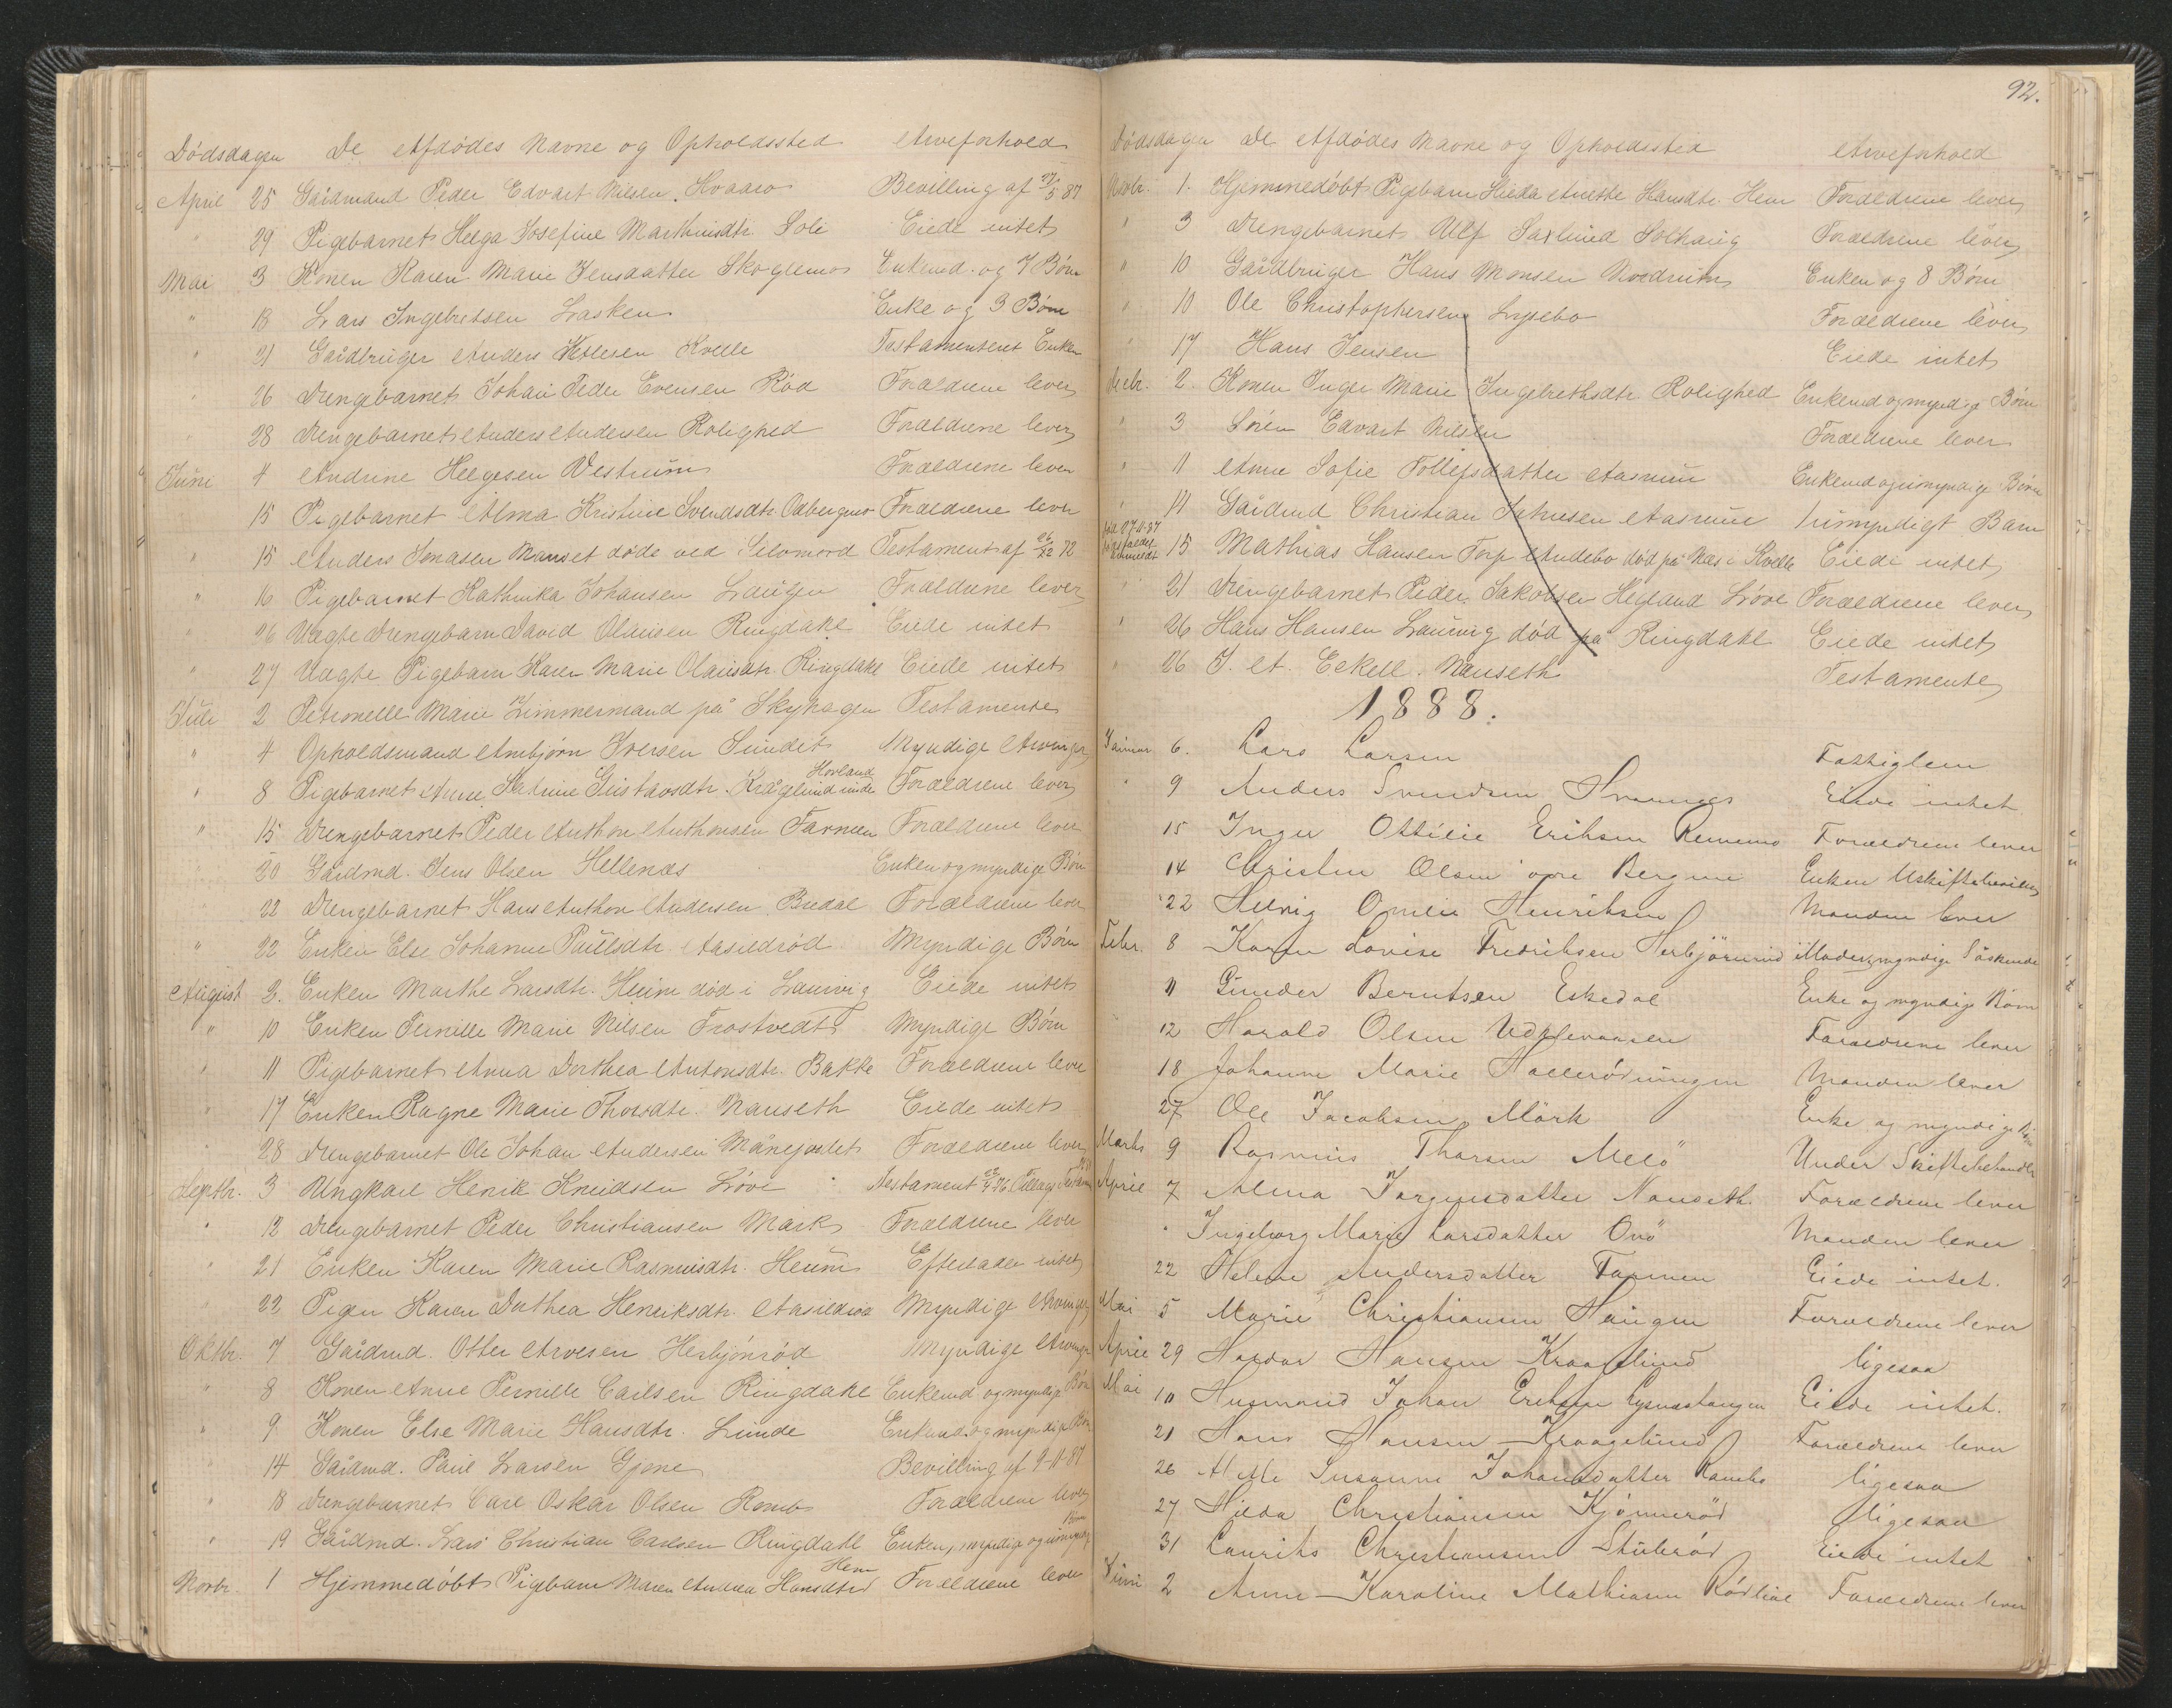 Dødsdagen De Afdødes Navne og Opholdssted Arveforhold
April 25 Gaardmand Peder Edvart Nilsen Hvaara Bevilling af 27/5 87
" 29 Pigebarnet Helga Josefine Marthinsdtr. Soli Eiede intet
Mai 3 Konen Karen Marie Jensdatter Skoglemo Enkemd. og 7 Børn
" 13 Lars Ingebretsen Lasken Enke og 3 Børn
" 21 Gaardbruger Anders Kvelle Testamenteret Enken
" 26 Drengebarnet Johan Peder Evensen Rød Forældrene lever
" 28 Drengebarnet Anders Andersen Rolighed Forældrene lever
Juni 4 Andrine Helgesen Vestrum Forældrene lever
15 Pigebarnet Alma Kristine Svendsdtr. Odbergmo Forældrene lever
" 15 Anders Jonassen Manset døde ved Selvmord Testament af 26/22 72
" 16 Pigebarnet Kathinka Johansen Laugen Forældrene lever
" 26 Uægte Drengebarn David Olausen Ringdahl Eiede intet
" 27 Uægte Pigebarn Karen Marie Olausdtr. Ringdahl Eiede intet
Juli 2 Petronelle Marie Zimmermand på Skyhagen Testamente
" 4 Opholdsmand Arnbjørn Iversen Sundet Myndige Arvinger
Hovland
" 8 Pigebarnet Anne Katrine Gustavsdtr. Kråglund Forældrene lever
" 15 Drengebarnet Peder Anthon Anthonsen Farmen Forældrene lever
20 Gaardmd. Jens Olsen Hellenæs Enken og myndige Børn
22 Drengebarnet Hans Anthon Andersen Bredal Forældrene lever
" 22 Enken Else Johanne Paulsdtr. Aasildrød Myndige Børn
August 2. Enken Marthe Larsdtr. Heum død i Laurvig Eiede intet
" 10 Enken Pernille Marie Nilsen Trostvedt Myndige Børn
" 11 Pigebarnet Anna Dorthea Antonsdtr. Bakke Forældrene lever
17 Enken Ragne Marie Thorsdtr. Nanseth Eiede intet
" 28 Drengebarnet Ole Johan Andersen Månejordet Forældrene lever
Septbr. 3 Ungkarl Henrik Knudsen Løve Testament
" 12 Drengebarnet Peder Christiansen Mørk Forældrene lever
" 21 Enken Karen Marie Rasmusdtr. Heum Efterlader intet
" 22 Pigen Karen Dorthea Henriksdtr. Aasildrød Myndige Arvinger
Oktbr. 7 Gaardmd. Otter Arvesen Herbjønrød Myndige Arvinger
" 8 Konen Anne Pernille Carlsen Ringdahl Enkemd og myndige Børn
" 9 Konen Else Marie Hansdtr. Lunde Enkemd. og myndige Børn
" 14 Gaardmd. Paul Larsen Gjone Bevilling af 9-11-87
" 18 Drengebarnet Carl Oskar Olsen Forældrene lever
" 19 Gaardmd. Lars Christian Carlsen Ringdahl Enken, myndige og umyndige Børn
Hem
Novbr. 1 Hjemmedøbt Pigebarn Maren Andrea Hansdatter Forældrene lever
92.
Dødsdagen De Afdødes Navne og Opholdssted Arveforhold
Novbr. 1. Hjemmedøbt Pigebarn Hilda Anette Hansdtr. Hem Forældrene lever
" 3 Drengebarnet Ulf Saxlund Solhaug Forældrene lever
" 10 Gårdbruger Hans Monsen Nordrum Enken og 8 Børn
" 10 Ole Christophersen Lysebo Forældrene lever
" 17 Hans Jensen Eiede intet
Decbr. 2. Konen Inger Marie Ingebrethsdtr. Rolighed Enkemd og myndige Børn
" 3 Sören Edvart Nilsen Forældrene lever
" 11 Anne Sofie Tollefsdatter Aasrum Enkemd og umyndige Børn
" 11 Gaardmd Christian Johnsen Aasrum 1 umyndigt Barn
15 Mathias Hansen Torp Andebo død på Næs i Kvelle Eiede intet
" 21 Drengebarnet Peder Jakobsen Hegland Løve Forældrene lever
" 26 Hans Hansen Laurvig død på Ringdahl Eiede intet
" 26 J. A. Eckell. Nanseth Testamente
1888.
Januar 6. Lars Larsen Fattiglem
" 9 Anders Svendsen Eiede intet
15 Inger Ottilie Eriksen Forældrene lever
14 Christen Olsen øvre Bergene Enken Uskiftebevilling
22 Helvig Omelie Henriksen Manden lever
Febr. 8 Karen Lovise Fredriksen Moder, myndige Søskende
11 Gunder Berntsen Eskedal Enke og myndige Børn
12 Harald Olsen Forældrene lever
18 Johanne Marie Manden lever
27 Ole Jacobsen Mörk Enke og myndige Børn
Marts 9 Rasmus Thorsen Melö Under Skiftebehandling
April 7 Alma Jørgensdatter Nanseth. Forældrene lever
" Ingeborg Marie Larsdatter Onö Manden lever
22 Helene Andersdatter Farmen Eiede intet.
Mai 5 Marie Christiansen Haugen Forældrene lever
April 29 Haldor Hansen Kraaglund ligesaa
Mai 10 Husmand Johan Eriksen Eiede intet.
21 Hans Hansen Kraagelund Forældrene lever
26 Mette Susanne Johansdatter ligesaa
27 Hilda Christiansen Kjønnerød ligesaa
31 Laurits Christiansen Stuberød Eiede intet
Juni 2 Anne Karoline Mathiasen Forældrene lever